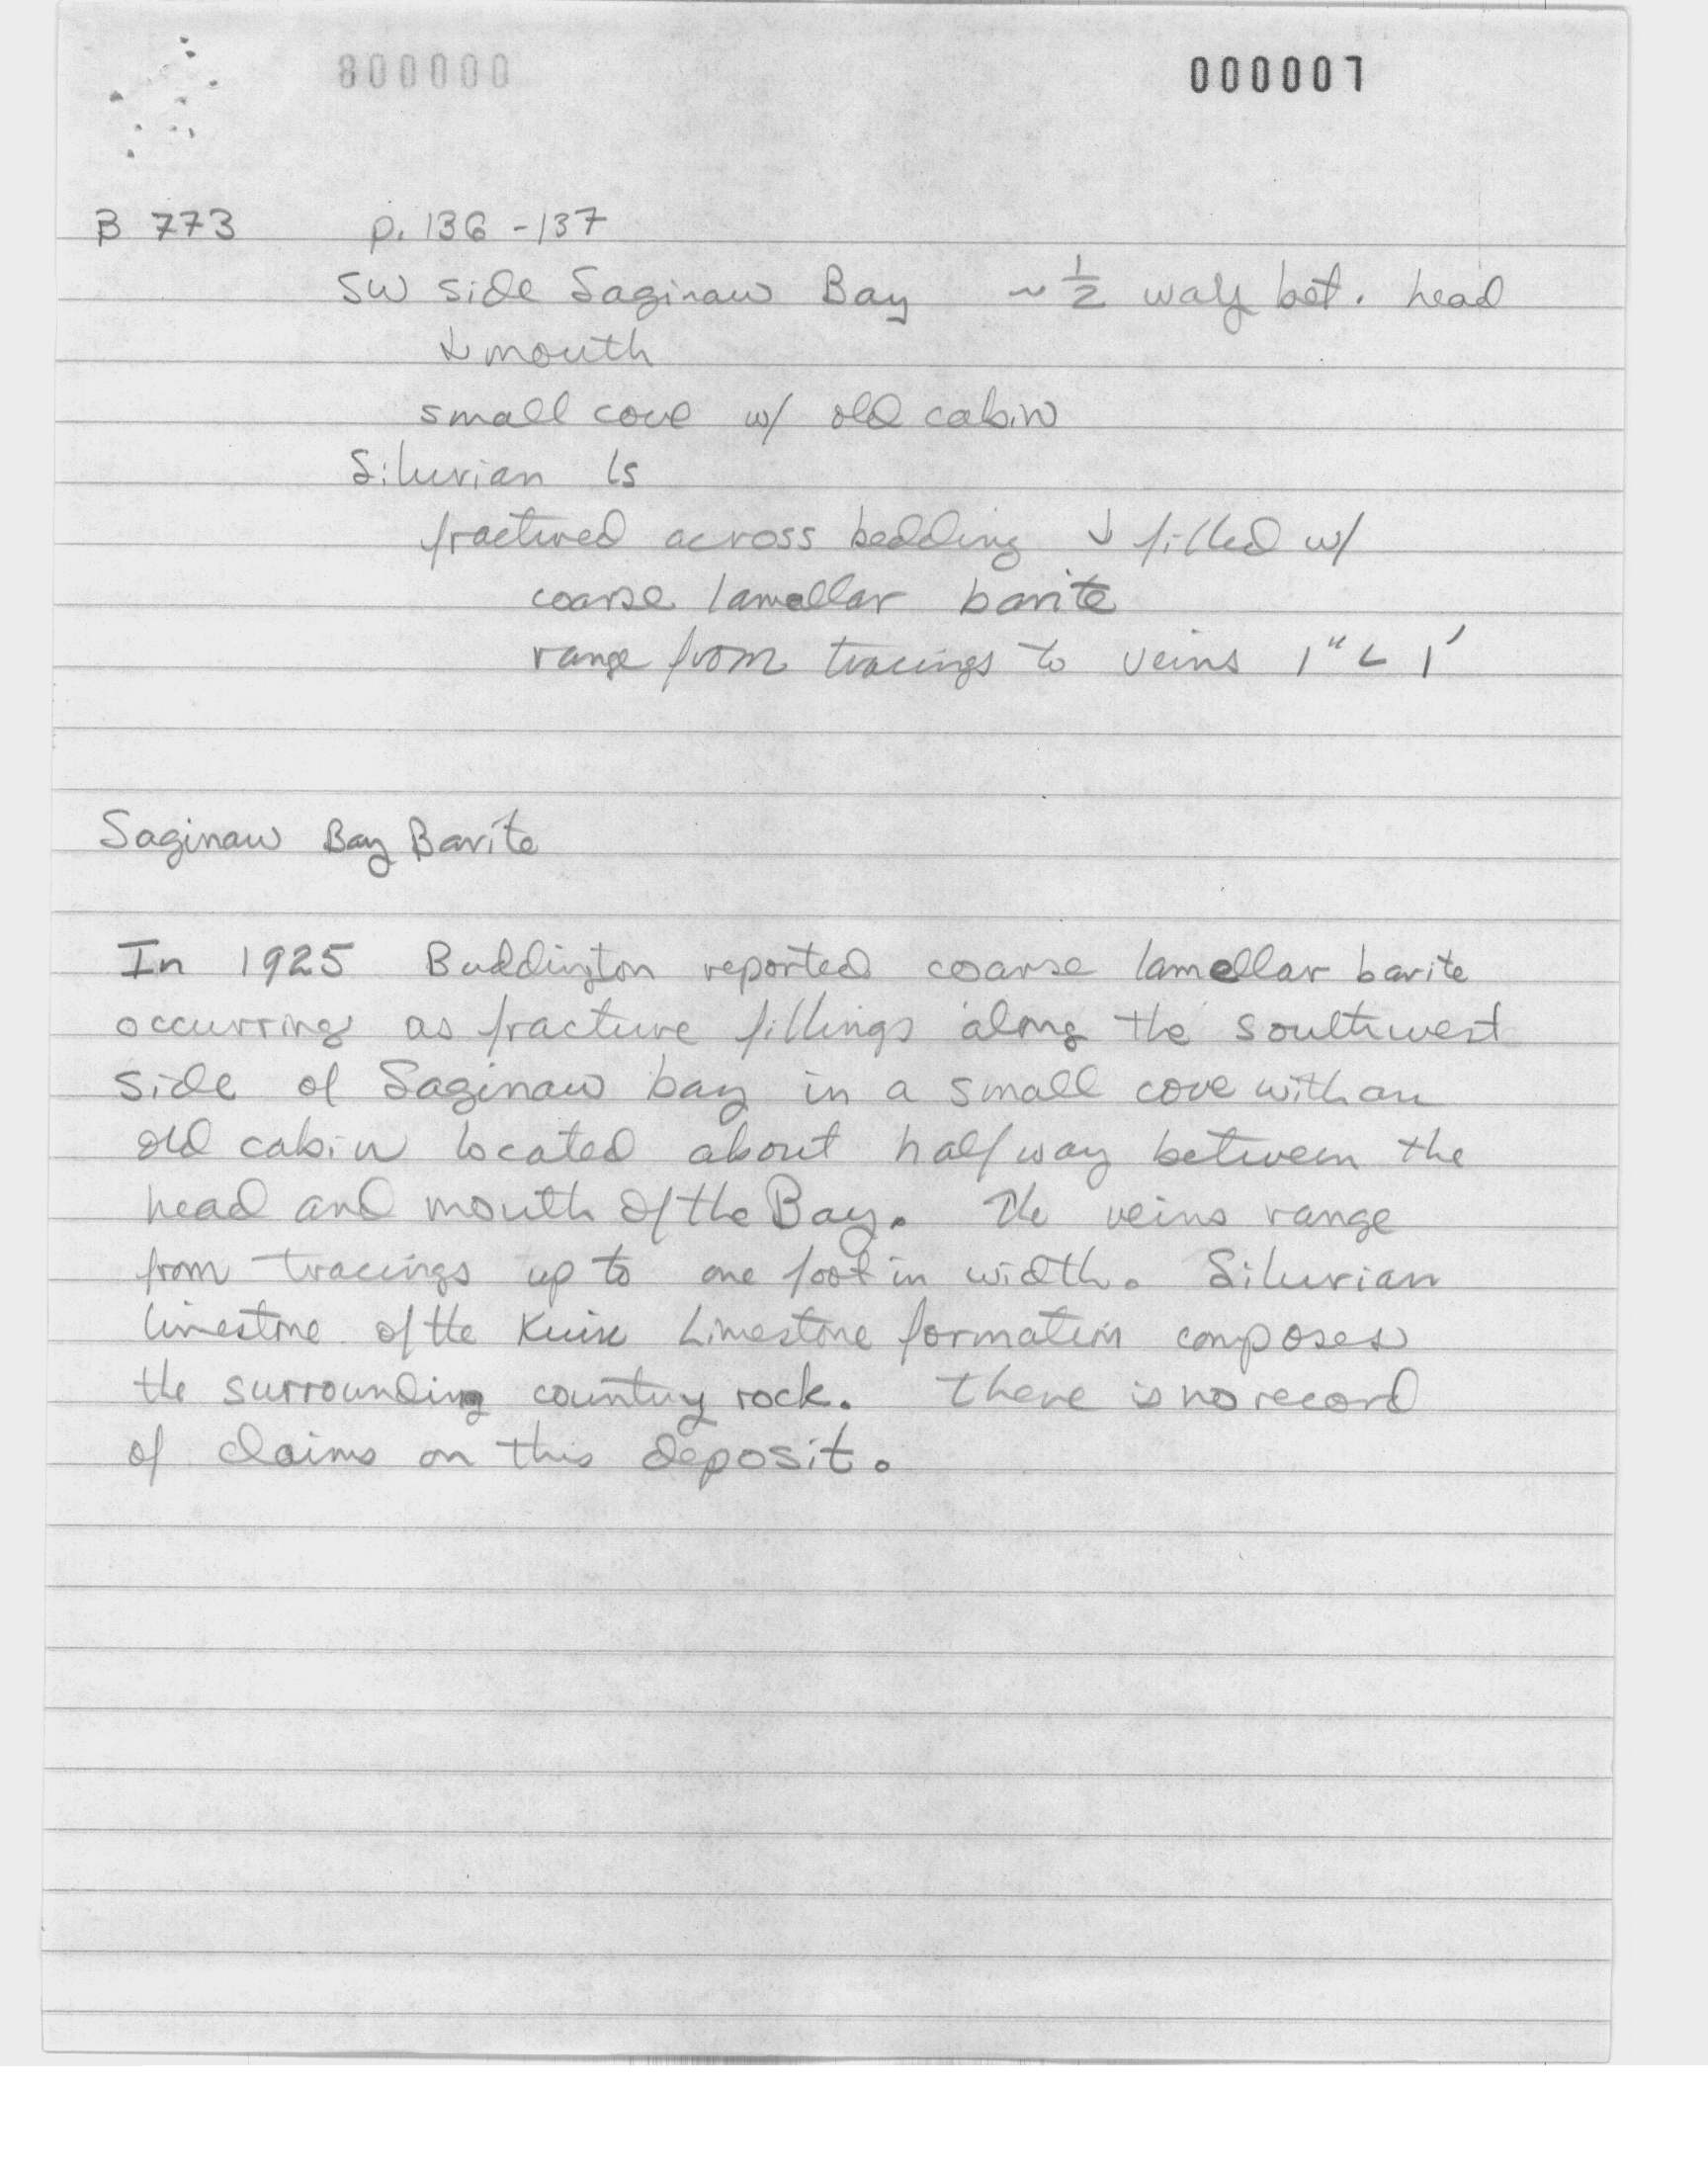 800000 000007
B 773 p. 136 -137
SW side Saginaw Bay ~ 1/2 way bet. head
& mouth
small cove w/ old cabin
Silurian ls
fractured across bedding & filled w/
coarse lamellar barite
range from tracings to veins 1" < 1'
Saginaw Bay Barite
In 1925 Buddington reported coarse lamellar barite
occurring as fracture fillings along the southwest
side of Saginaw bay in a small cove with an
old cabin located about halfway between the
head and mouth of the Bay. The veins range
from tracings up to one foot in width. Silurian
limestone of the Kuiu Limestone formation composes
the surrounding country rock. There is no record
of claims on this deposit.